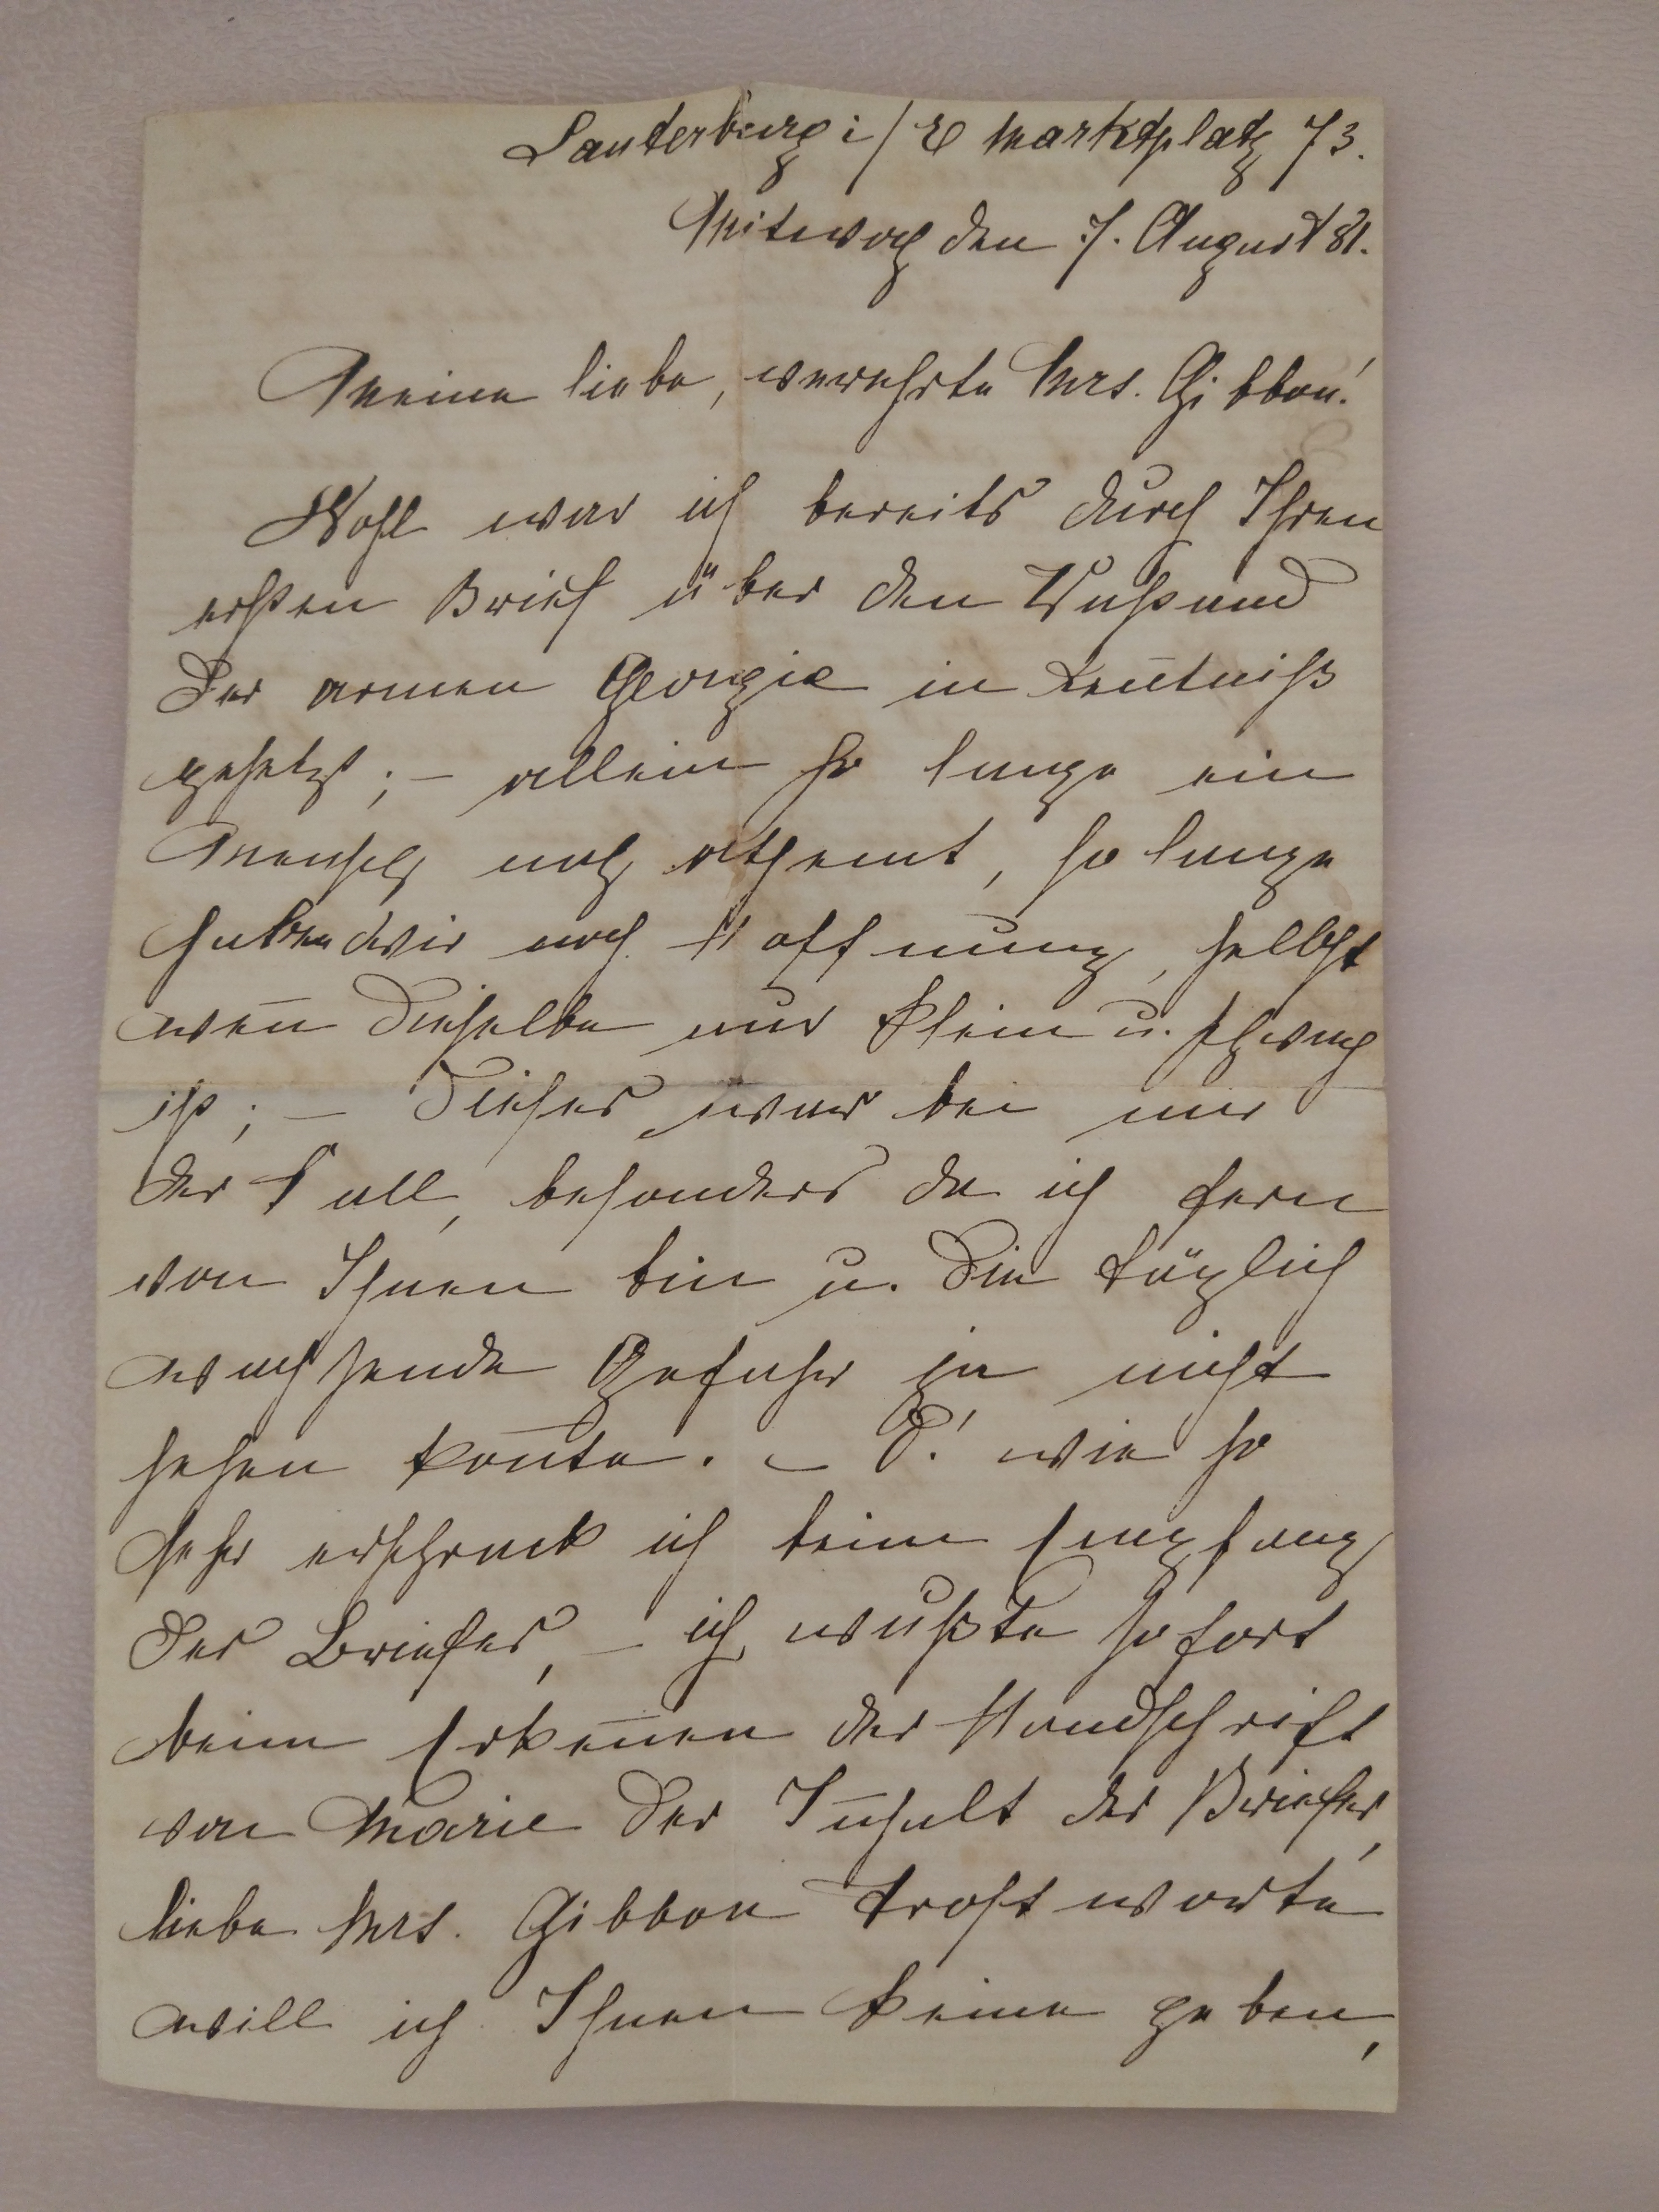 Lauterburg i/E Marktplatz 73.
Mitwoch den 7. August 81.
Meine liebe, verehrte Mrs. Gibbon!
Wohl war ich bereits durch Ihren
ersten Brief über den Zustand
der armen Georgie in Keñtniß
gesetzt; – allein so lange ein
Mensch noch athemt, so lange
haben wir noch Hoffnung, selbst
weñ dieselbe nur klein u. schwach
ist; – dieses war bei mir
der Fall, besonders da ich fern
von Ihnen bin u. die täglich
wachsende Gefahr ja nicht
sehen koñte. – O! wie so
sehr erschrack ich beim Empfang
des Briefes, – ich wußte sofort
beim Erkeñen der Handschrift
von Marie der Iñhalt des Briefes,
liebe Mrs. Gibbon Trostworte
will ich Ihnen keine geben,